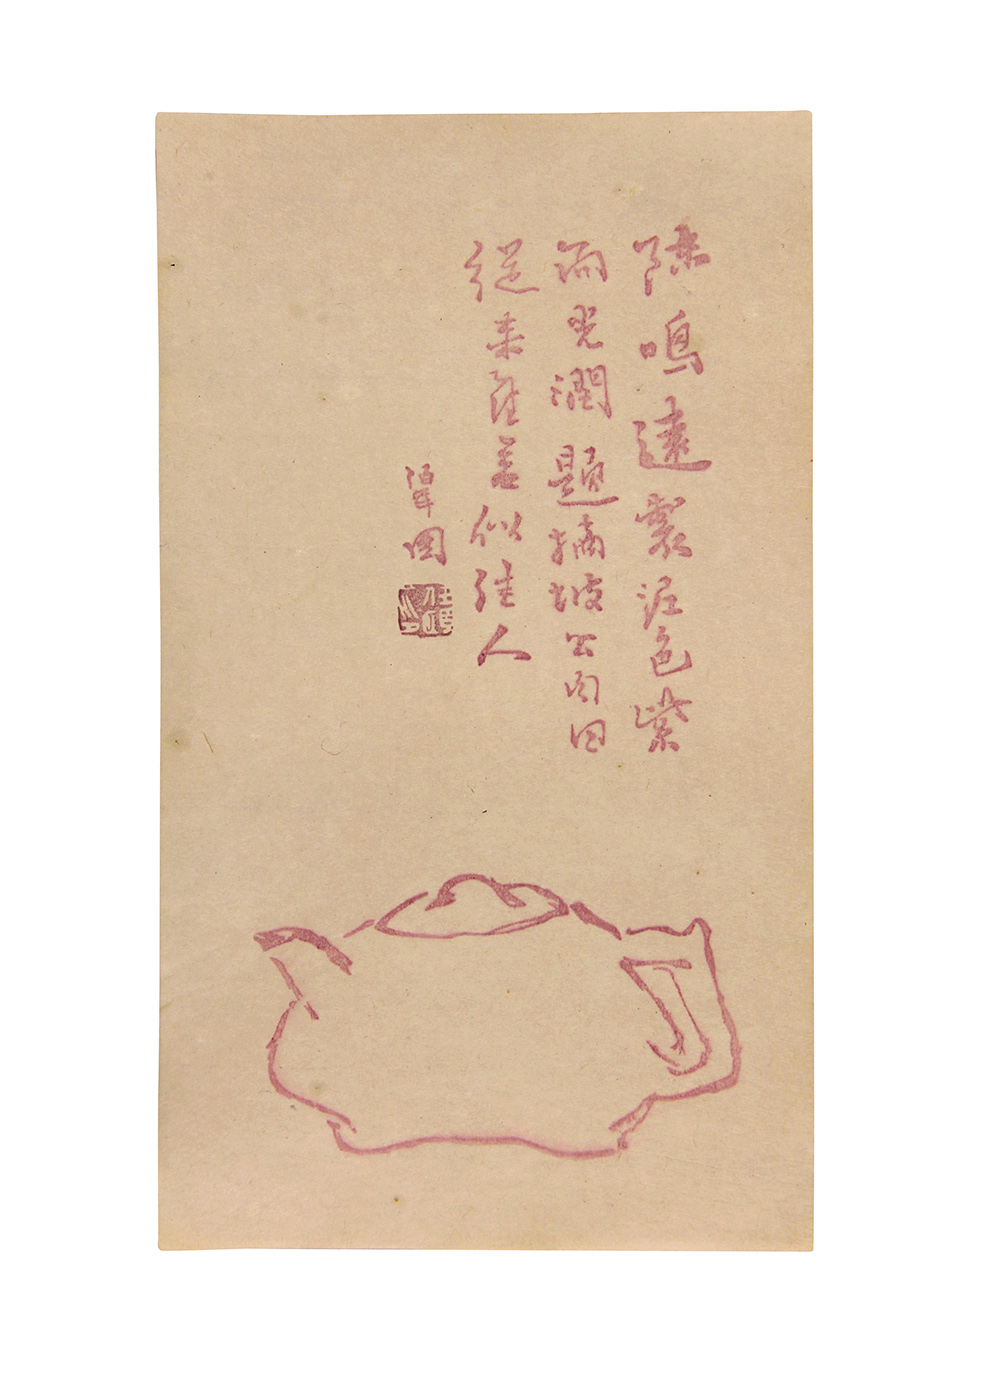 陳鳴遠製泥色紫
而光潤題摘坡公句曰
從来佳茗似佳人
图